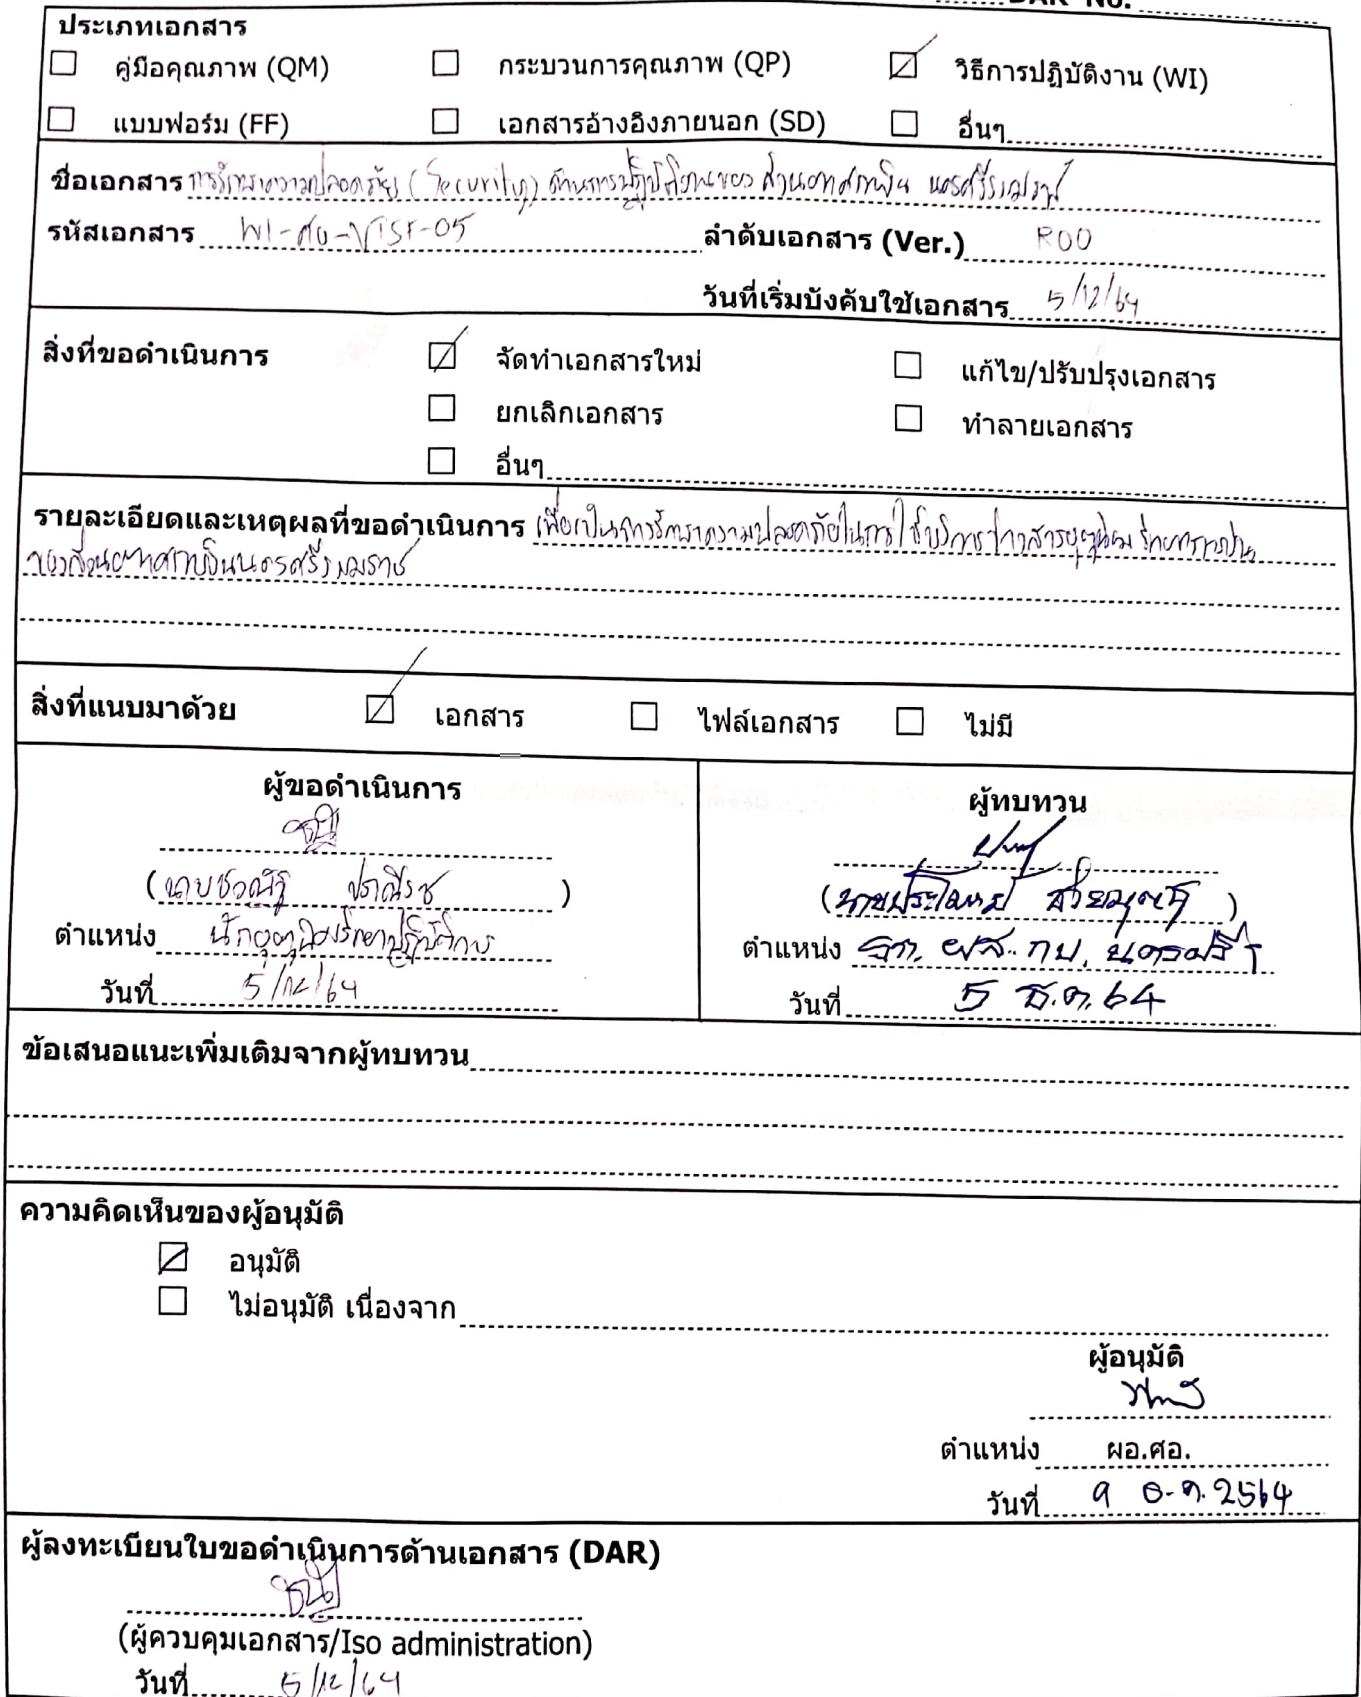 DAR No.
ประเภทเอกสาร
คู่มือคุณภาพ (QM) กระบวนการคุณภาพ (QP) วิธีการปฏิบัติงาน (WI)
แบบฟอร์ม (FF) เอกสารอ้างอิงภายนอก (SD) อื่นๆ
ชื่อเอกสาร การรักษาความปลอดภัย (Security) ด้านการปฏิบัติงานของ ส่วนอากาศการบิน นครศรีธรรมราช
รหัสเอกสาร ลำดับเอกสาร (Ver.) R00
วันที่เริ่มบังคับใช้เอกสาร 5/12/64
สิ่งที่ขอดำเนินการ จัดทำเอกสารใหม่ แก้ไข/ปรับปรุงเอกสาร
ยกเลิกเอกสาร ทำลายเอกสาร
อื่นๆ
รายละเอียดและเหตุผลที่ขอดำเนินการ เพื่อเป็นการรักษาความปลอดภัยในการใช้บริการข่าวสารอุตุนิยมวิทยาการบิน
ของส่วนอากาศการบินนครศรีธรรมราช
สิ่งที่แนบมาด้วย เอกสาร ไฟล์เอกสาร ไม่มี
ผู้ขอดำเนินการ ผู้ทบทวน
ตำแหน่ง นักอุตุนิยมวิทยาปฏิบัติการ
วันที่ 5/12/64
ตำแหน่ง
วันที่ 5 ธ.ค. 64
ข้อเสนอแนะเพิ่มเติมจากผู้ทบทวน
ความคิดเห็นของผู้อนุมัติ
อนุมัติ
ไม่อนุมัติ เนื่องจาก
ผู้อนุมัติ
ตำแหน่ง ผอ.ศอ.
วันที่ 9 ธ.ค. 2564
ผู้ลงทะเบียนใบขอดำเนินการด้านเอกสาร (DAR)
(ผู้ควบคุมเอกสาร/Iso administration)
วันที่ 5/12/64